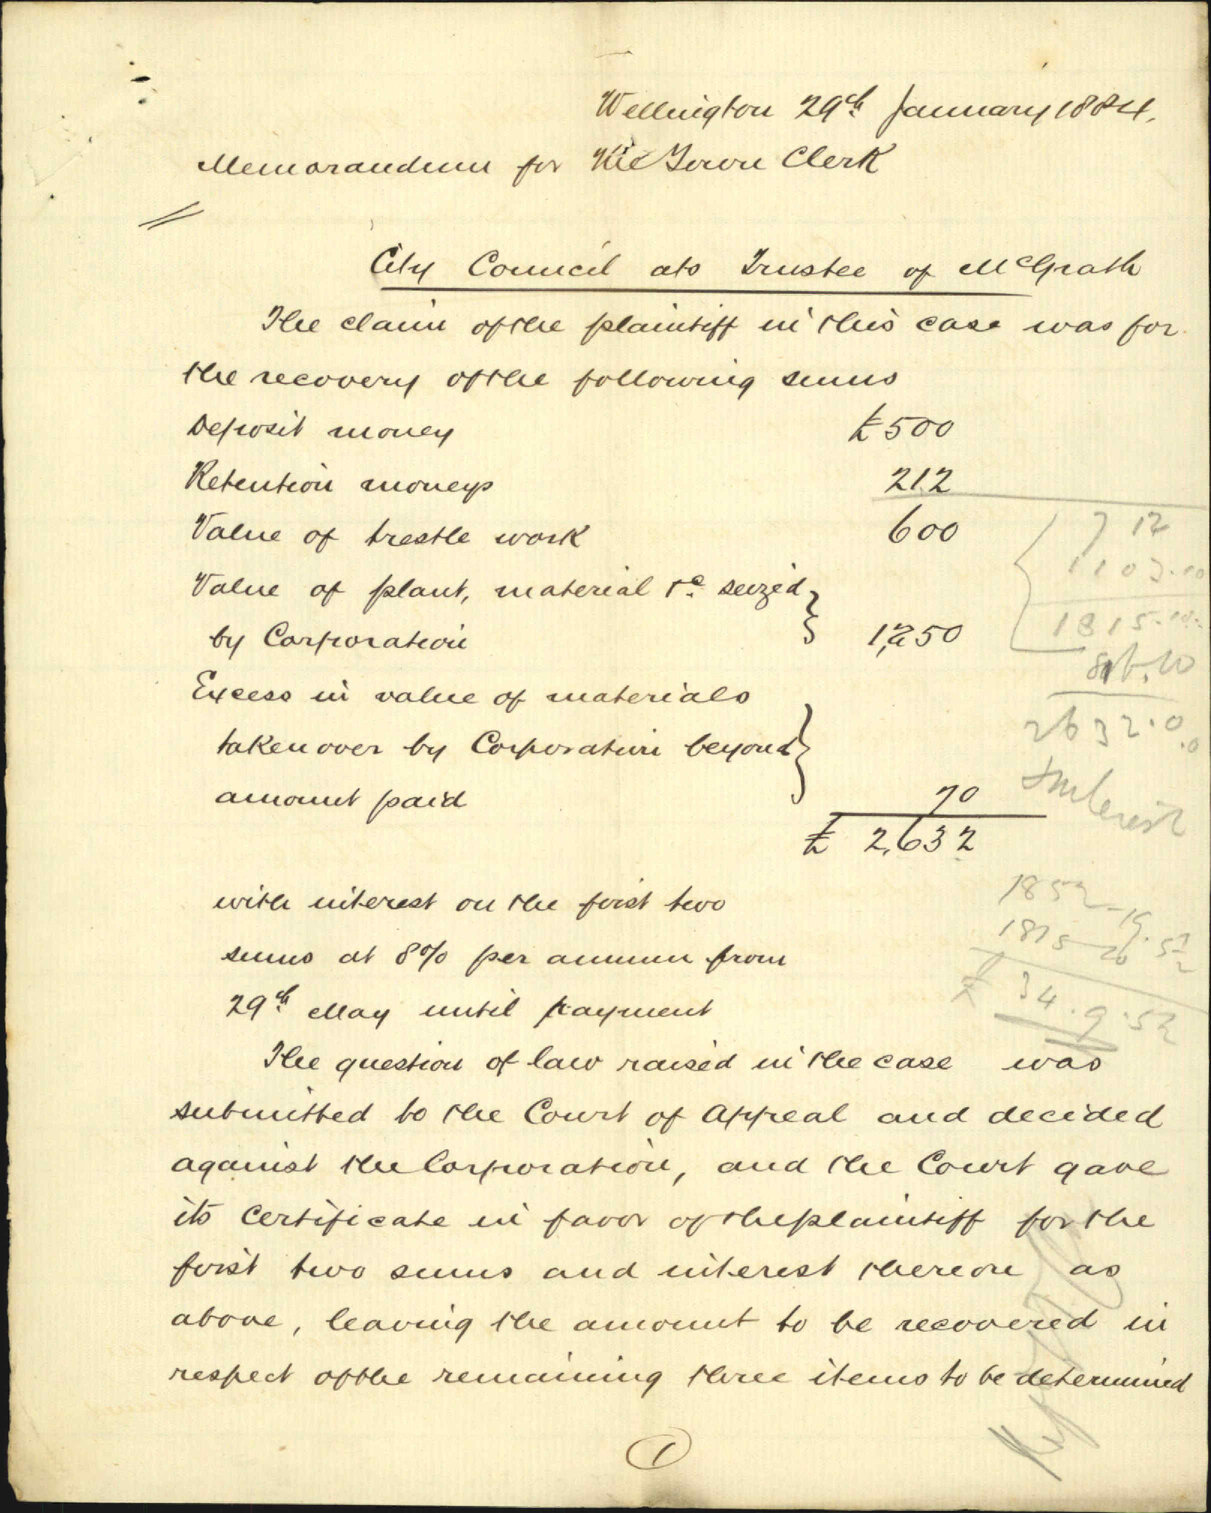 Wellington 29th January 1884.
Memorandum for The Town Clerk
City Council ats Trustee of McGrath
The claim of the plaintiff in this case was for
the recovery of the following sums
Deposit money £500
Retention moneys 212
Value of trestle work 600
Value of plant, material &c seized
by Corporation 1,250
Excess in value of materials
taken over by Corporation beyond
amount paid 70
£ 2,632
712
1103.10
1815.10
816.10
2632.0.0
Interest
with interest on the first two
sums at 8% per annum from
29th May until payment
1852
1815
£ 34.9.5½
The question of law raised in the case was
submitted to the Court of Appeal and decided
against the Corporation, and the Court gave
its certificate in favor of the plaintiff for the
first two sums and interest thereon as
above, leaving the amount to be recovered in
respect of the remaining three items to be determined
1